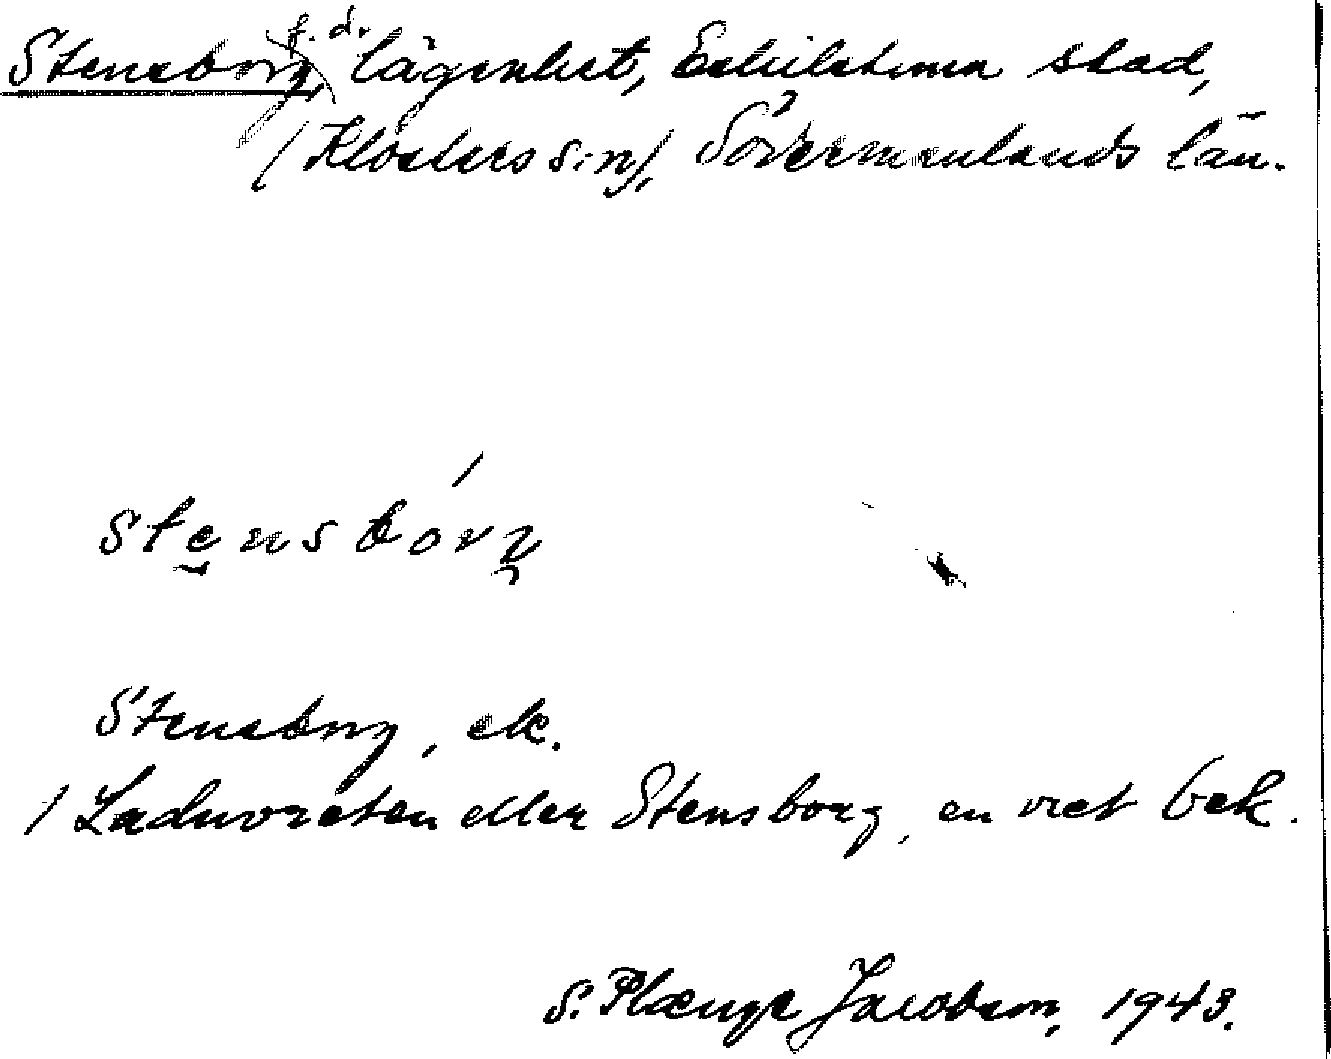 Stensborg, f. d. lägenhet, Eskilstuna stad,
(Klosters s:n), Södermanlands län.
stensbórg
Stensborg, ek.
/ Laduvreten eller Stensborg, en vret bek.
S. Plænge Jacobson, 1943.